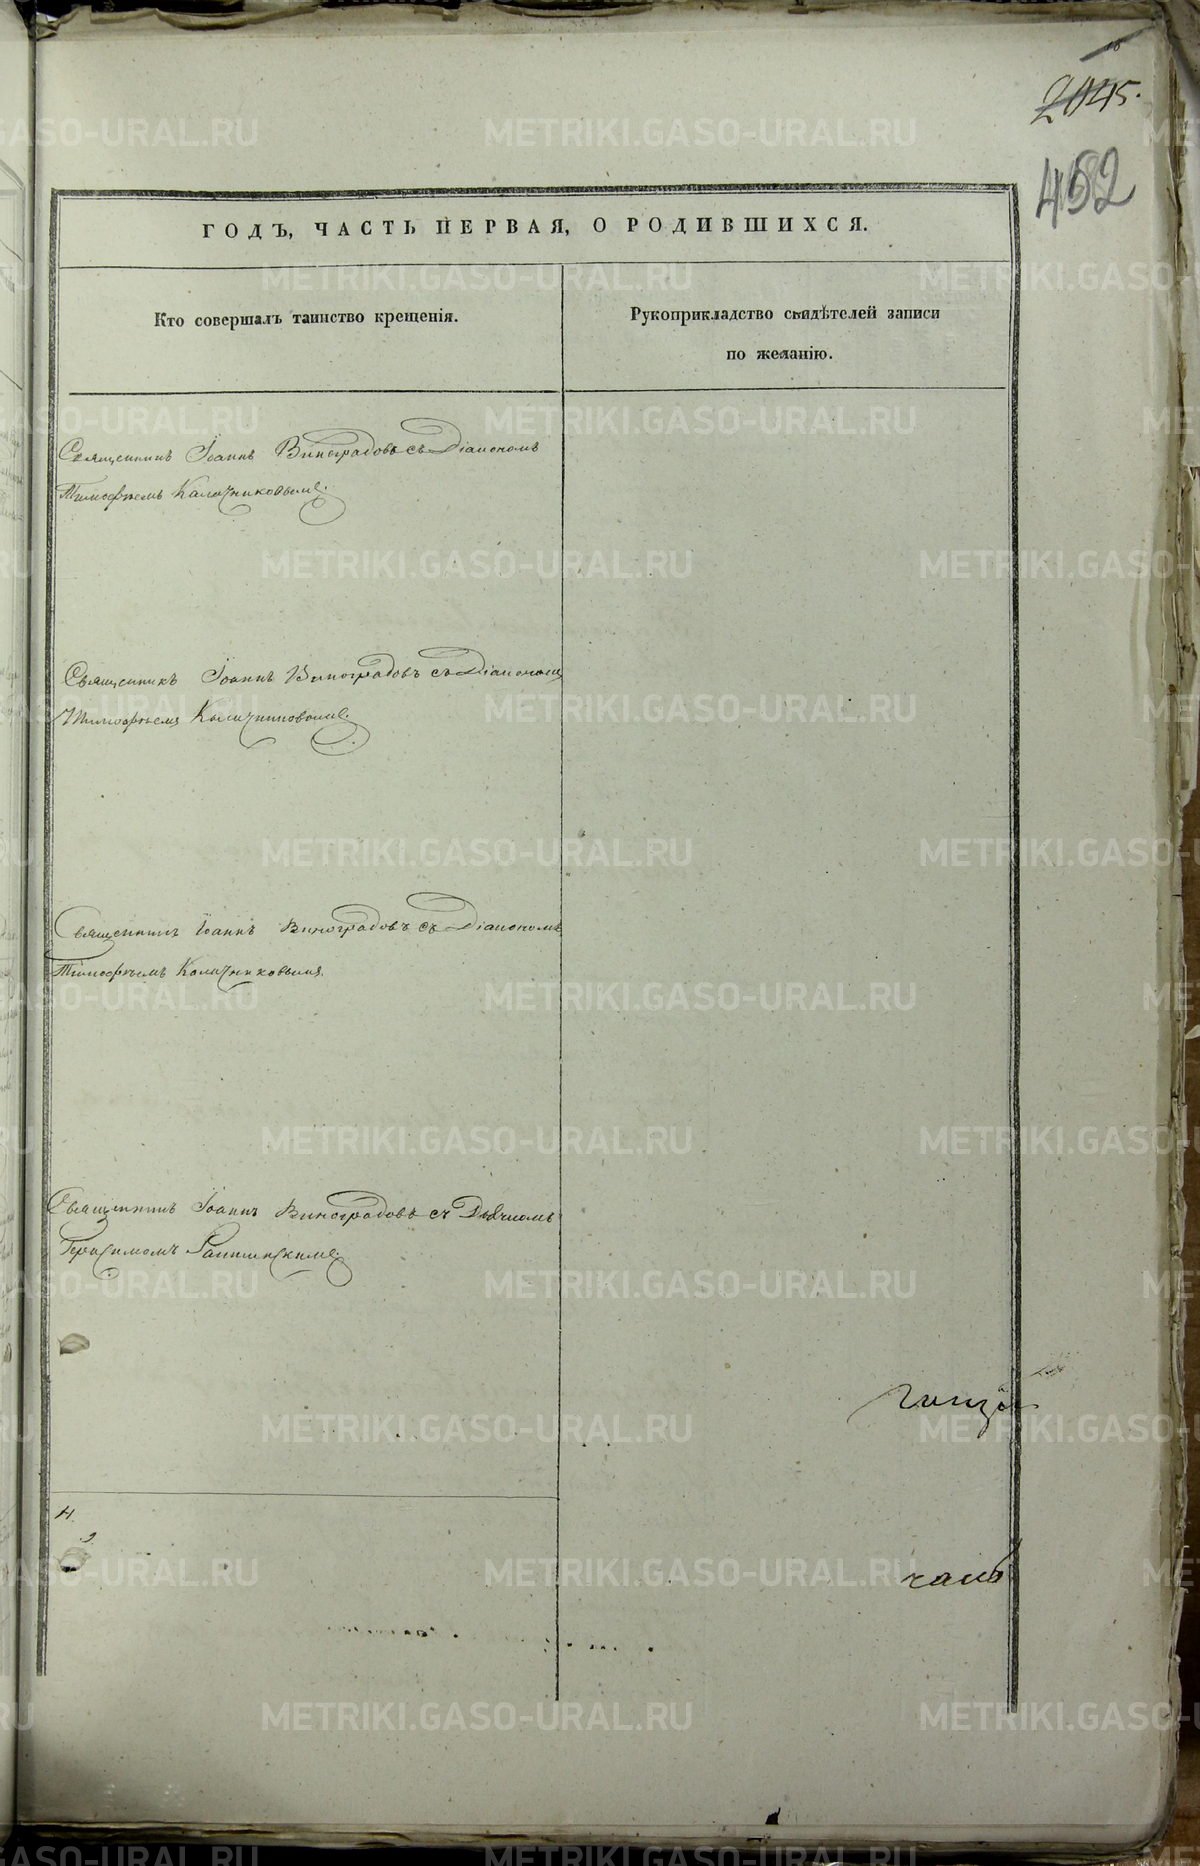 2045.
452
ГОДЪ, ЧАСТЬ ПЕРВАЯ, О РОДИВШИХСЯ.
Кто совершалъ таинство крещенія.
Рукоприкладство свидѣтелей записи
по желанію.
Священникъ Іоаннъ Виноградовъ съ Діакономъ
Тимофѣемъ Калачниковымъ.
Священникъ Іоаннъ Виноградовъ съ Діакономъ
Тимофѣемъ Калачниковымъ.
Священникъ Іоаннъ Виноградовъ съ Діакономъ
Тимофѣемъ Калачниковымъ.
Священникъ Іоаннъ Виноградовъ съ Дьячкомъ
Герасимомъ
METRIKI.GASO-URAL.RU